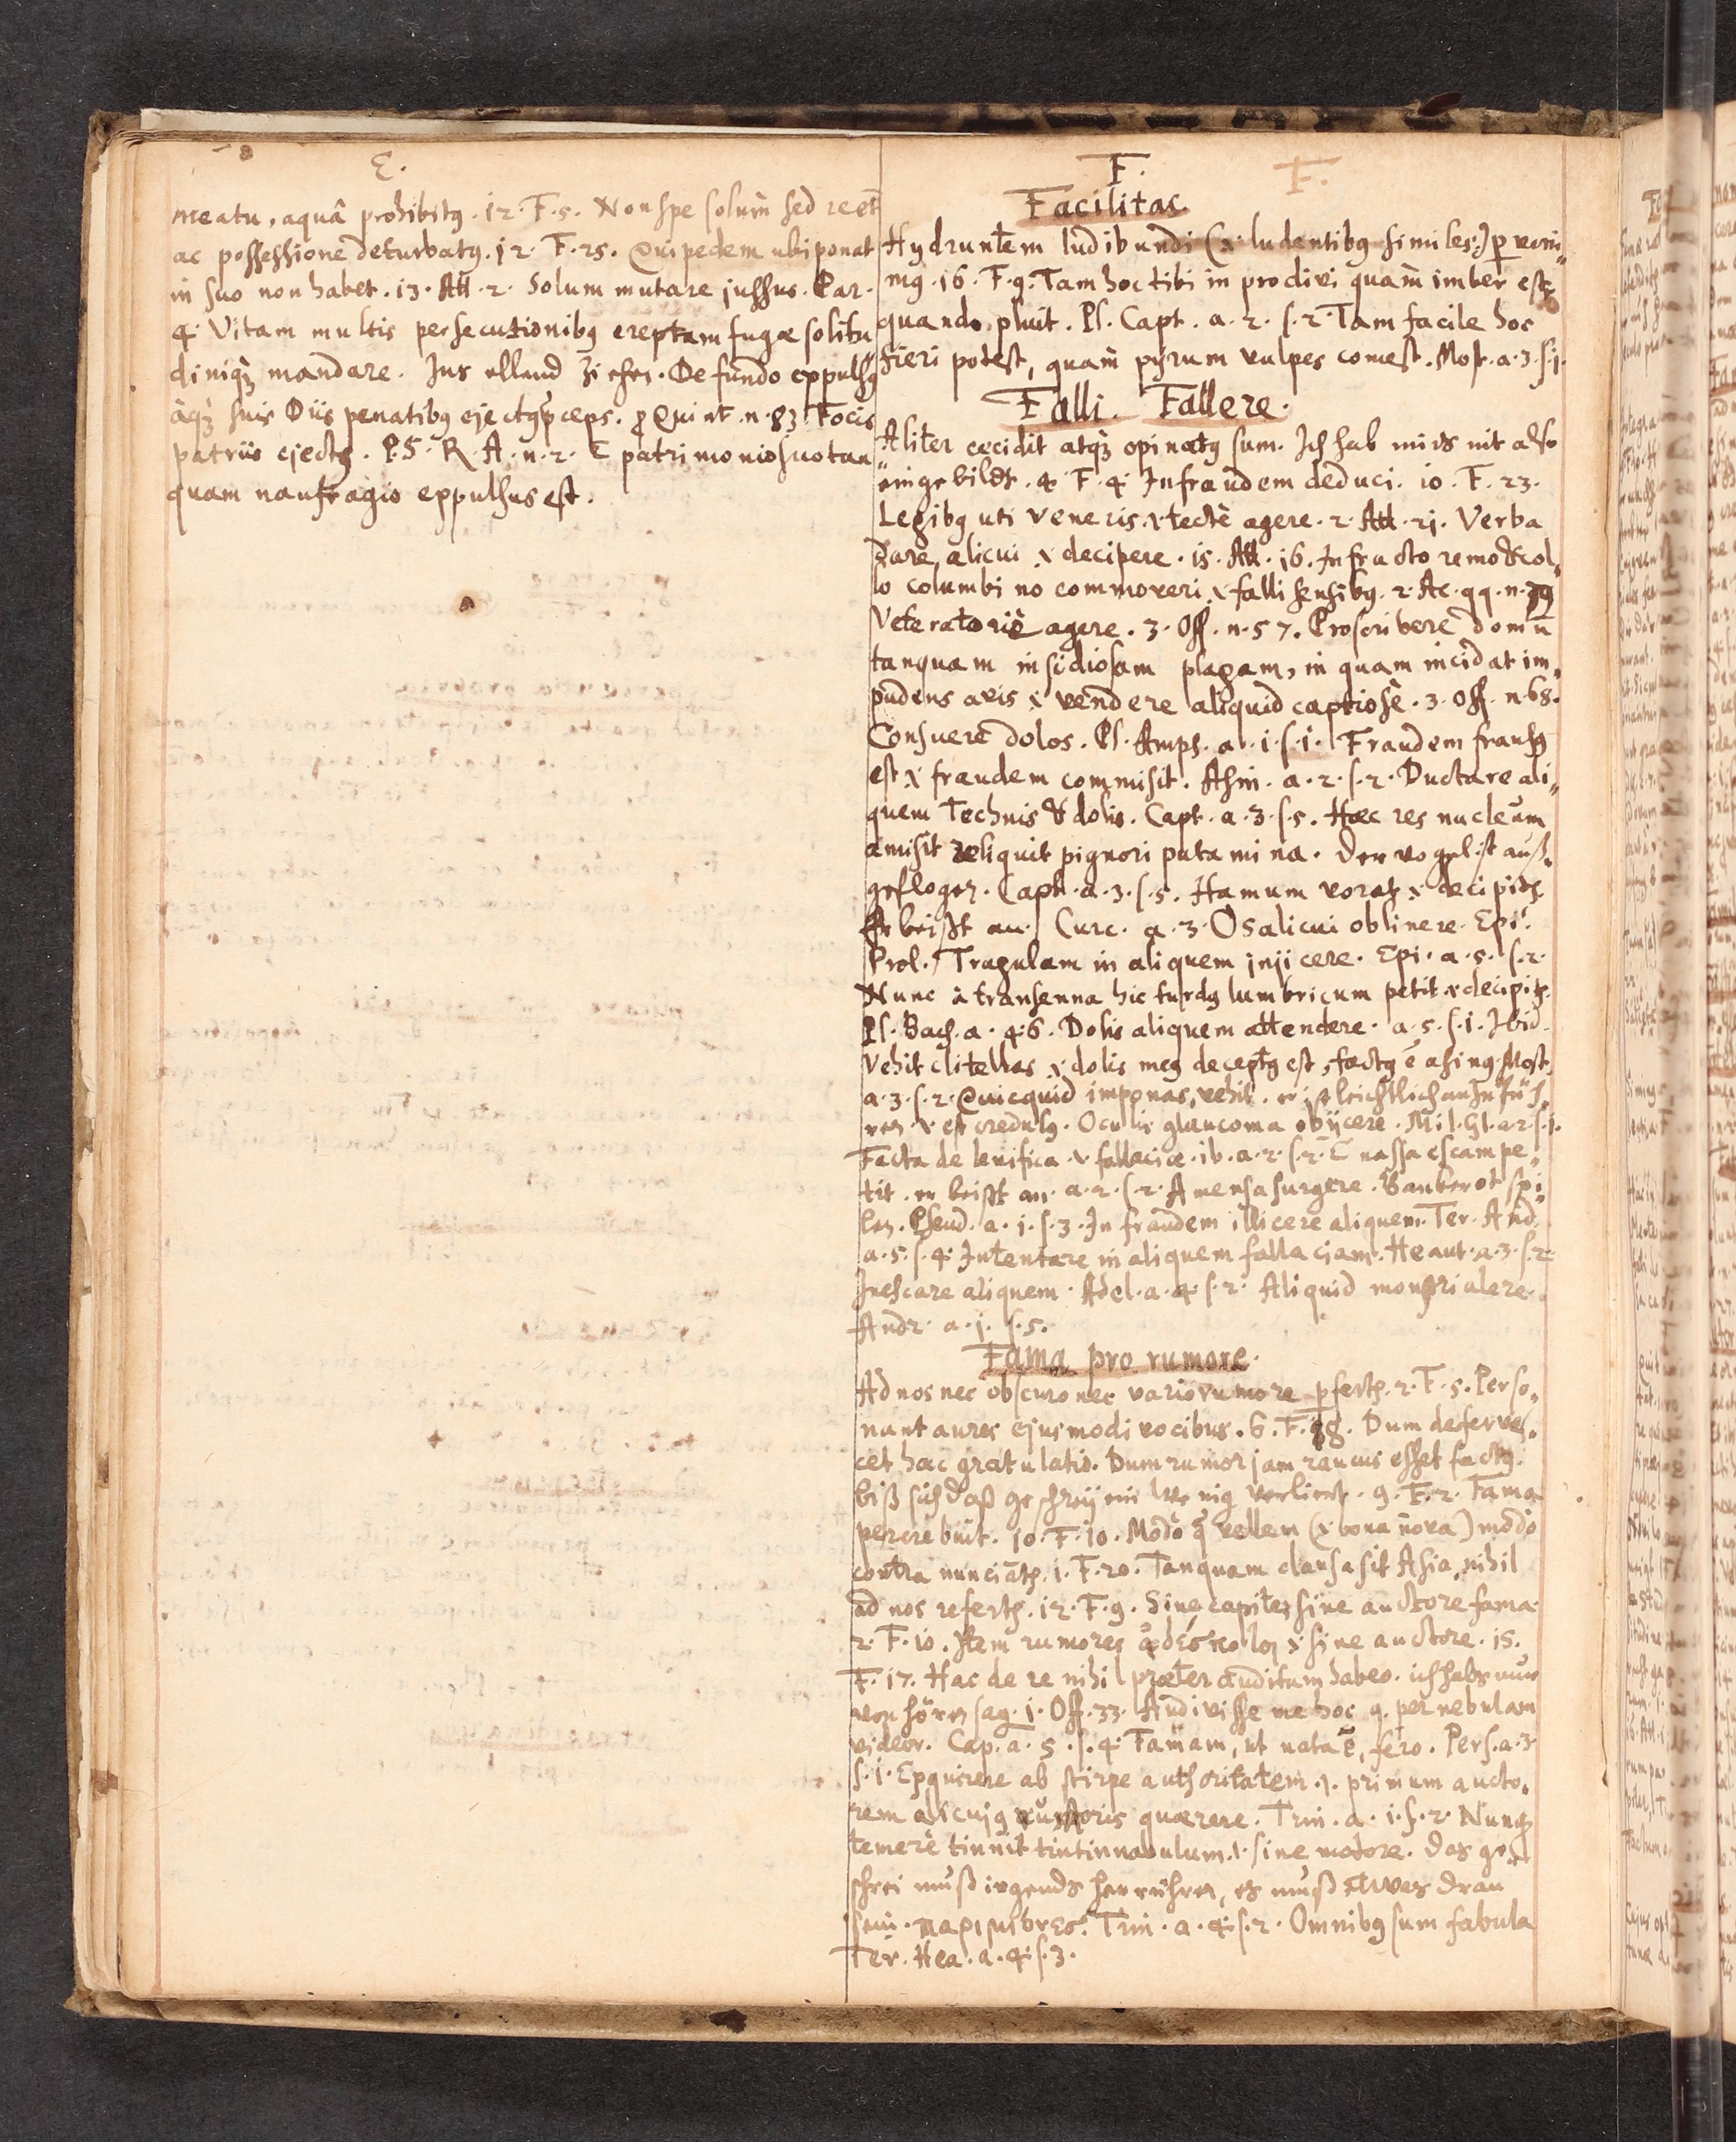 E.
meatu, aquâ prohibitg. 12. F. 5. Non spe solùm sed reet
ac possessione deturbatg. 12. F. 25. Qui pedem ubi ponat
in suo non habet. 13. Att. 2. Solum mutare jussus. Par.
4. Vitam multis persecutionibg ereptam fugæ solitu
diniqz mandare. Ins ellend ziehen. De fundo exppulsg
àqz suis Diis penatibg ejectg pceps. p Quint. n. 83 Focis
patriis ejectg. P. S. R. A. n. 2. E patrimonio suo tan
quam naufragio exppulsus est.
F. F.
Facilitas
Hydruntem ludibundi (x. ludentibg similes:) p veni„
mg. 16. F. 9. Tam hoc tibi in proclivi quàm imber est,
quando pluit. Pl. Capt. a. 2. s. 2. Tam facile hoc
fieri potest, quàm pyrum vulpes comest. Most. a. 3. s. 1.
Falli. Fallere.
Aliter cecidit atqz opinatg sum. Ich hab mirs nit also
„eingebildt. 4. F. 4. In fraudem deduci. 10. F. 23.
Legibg uti Veneris. x tectè agere. 2. Att. 21. Verba
dare alicui x decipere. 15. Att. 16. Infracto remo & col„
lo columbi no commoveri x falli sensibg. 2. Ac. qq. n. 79
Veteratoriè agere. 3. Off. n. 57. Proscribere domū
tanquam insidiosam plagam, in quam incidat im„
pudens avis x vendere aliquid captiosè. 3. Off. n. 68.
Consuere dolos. Pl. Amph. a. 1. s. 1. Fraudem frausg
est x fraudem commisit. Asin. a. 2. s. 2. Ductare ali„
quem Technis & dolis. Capt. a. 3. s. 5. Hæc res nucleum
amisit reliquit pignori putamina. Der vogel ist auß„
geflogen. Capt. a. 3. s. 5. Hamum vorat x decipitr.
Er beißt an. Curc. a. 3. Os alicui oblinere. Epi.
Prol. Tragulam in aliquem injicere. Epi. a. 5. s. 2.
Nunc à transenna hic turdg lumbricum petit x decipitr.
Pl. Bach. a. 4. 6. Dolis aliquem attendere. a. 5. s. 1. Ibid.
Vehit clitellas x dolis meg deceptg est, factg ē asing. Most.
a. 3. s. 2. Quicquid imponas, vehit. er ist leichtlich anzufüh„
ren x est credulg. Oculis glaucoma objicere. Mil. Gl. a. 2. s. 1.
Facta delenifica x fallaciæ. ib. a. 2. s. 2. E nassa escam pe„
tit. er beißt an. a. 2. s. 2. A mensa surgere. Bankerot spi„
len. Pseud. a. 1. s. 3. In fraudem illicere aliquem. Ter. And.
a. 5. s. 4. Intentare in aliquem fallaciam. Heaut. a. 3. s. 2.
Inescare aliquem. Adel. a. 4. s. 2. Aliquid monstri alere.
Andr. a. 1. s. 5.
Fama pro rumore.
Ad nos nec obscuro nec vario rumore pfertr. 2. F. 5. Perso„
nant aures ejusmodi vocibus. 6. F. 18. Dum deferves„
cet hac gratulatio. Dum rumor jam raucus esset factg.
biß sich daß geschreÿ ein wenig verliert. 9. F. 2. Fama
percrebuit. 10. F. 10. Modò q vellem (x bona nova) modò
contra nunciātr. 1. F. 20. Tanquam clausa sit Asia, nihil
ad nos refertr. 12. F. 9. Sine capite, sine auctore fama.
2. F. 10. Item rumores ἀδέσποτοι x sine auctore. 15.
F. 17. Hac de re nihil præter auditum habeo. ich habs nur
von hören sag. 1. Off. 33. Audivisse me hoc q. per nebulam
videor. Cap. a. 5. s. 4. Famam, ut nata ē, fero. Pers. a. 3.
s. 1. Exquirere ab stirpe authoritatem. x. primum aucto„
rem alicujg rumoris quærere. Trin. a. 1. s. 2. Nunqz
temerè tinnit tintinnabulum. x. sine motore. Das ge„
schrei muß irgends her rühren, es muß etwas dran
sein. Trin. a. 4. s. 2. Omnibg sum fabula
Ter. Hea. a. 4. s. 3.